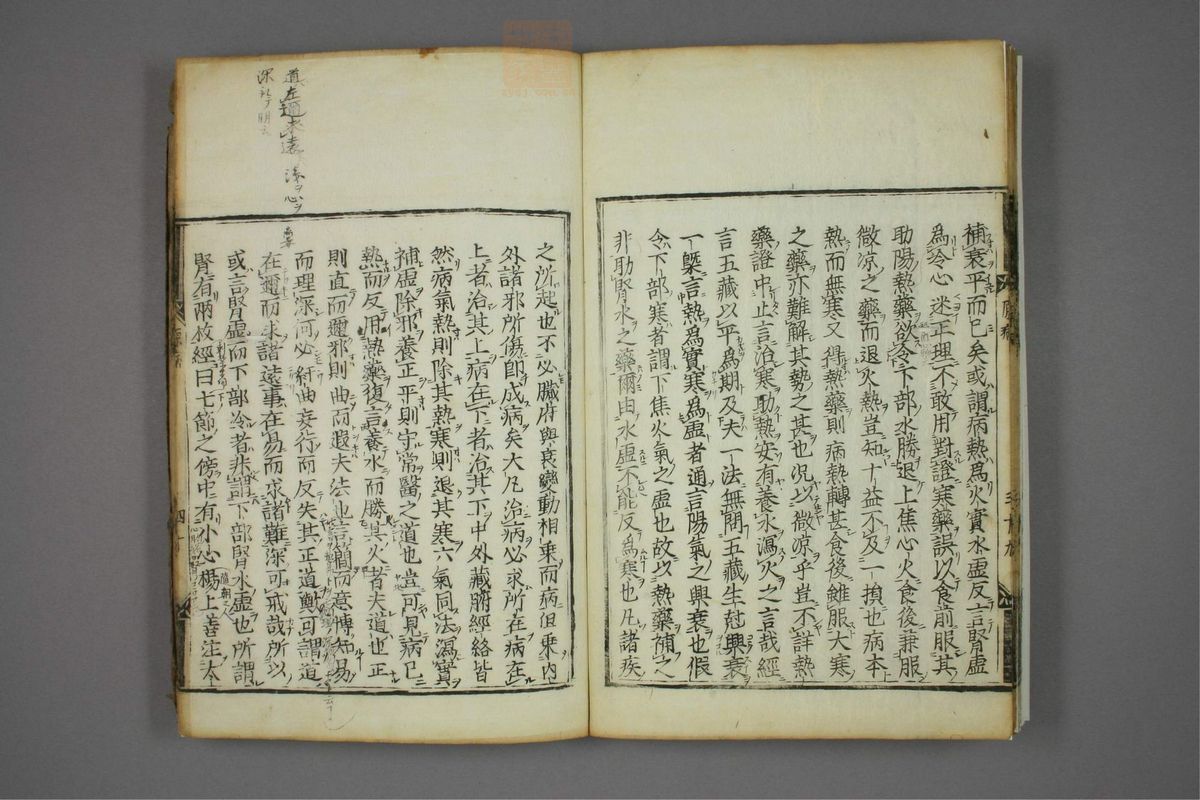 補衰平而已矣或謂病熱為火實水虛反言腎虛
為冷心迷正理不敢用對證寒藥誤以食前服其
助陽熱藥欲令下部水勝退上焦心火食後兼服
微涼之藥而退火熱豈知十益不及一損也病本
熱而無寒又得熱藥則病熱轉甚食後雖服大寒
之藥亦難解其勢之甚也況以微涼乎豈不詳熱
藥證中止言治寒助熱安有養水瀉火之言哉經
言五藏以平為期及夫一法無問五藏生尅興衰
一槩言熱為實寒為虛者通言陽氣之興衰也假
令下部寒者謂下焦火氣之虛也故以熱藥補之
非助腎水之藥爾由水虛不能反為寒也凡諸疾
之所起也不必臟府興衰變動相乘而病但乘內
外諸邪所傷即成病矣大凡治病必求所在病在
上者治其上病在下者治其下中外藏腑經絡皆
然病氣熱則除其熱寒則退其寒六氣同法瀉實
補虛除邪養正平則守常醫之道也豈可見病已
熱而反用熱藥復言養水而勝其火者夫道也正
則直而邇邪則曲而遐夫法也言簡而意博知易
而理深何必紆曲妄行而反失其正道歟可謂道
在邇而求諸遠事在易而求諸難深可戒哉所以
或言腎虛而下部冷者非謂下部腎水虛也所謂
腎有兩枚經曰七節之傍中有小心楊上善注太
道在邇求遠